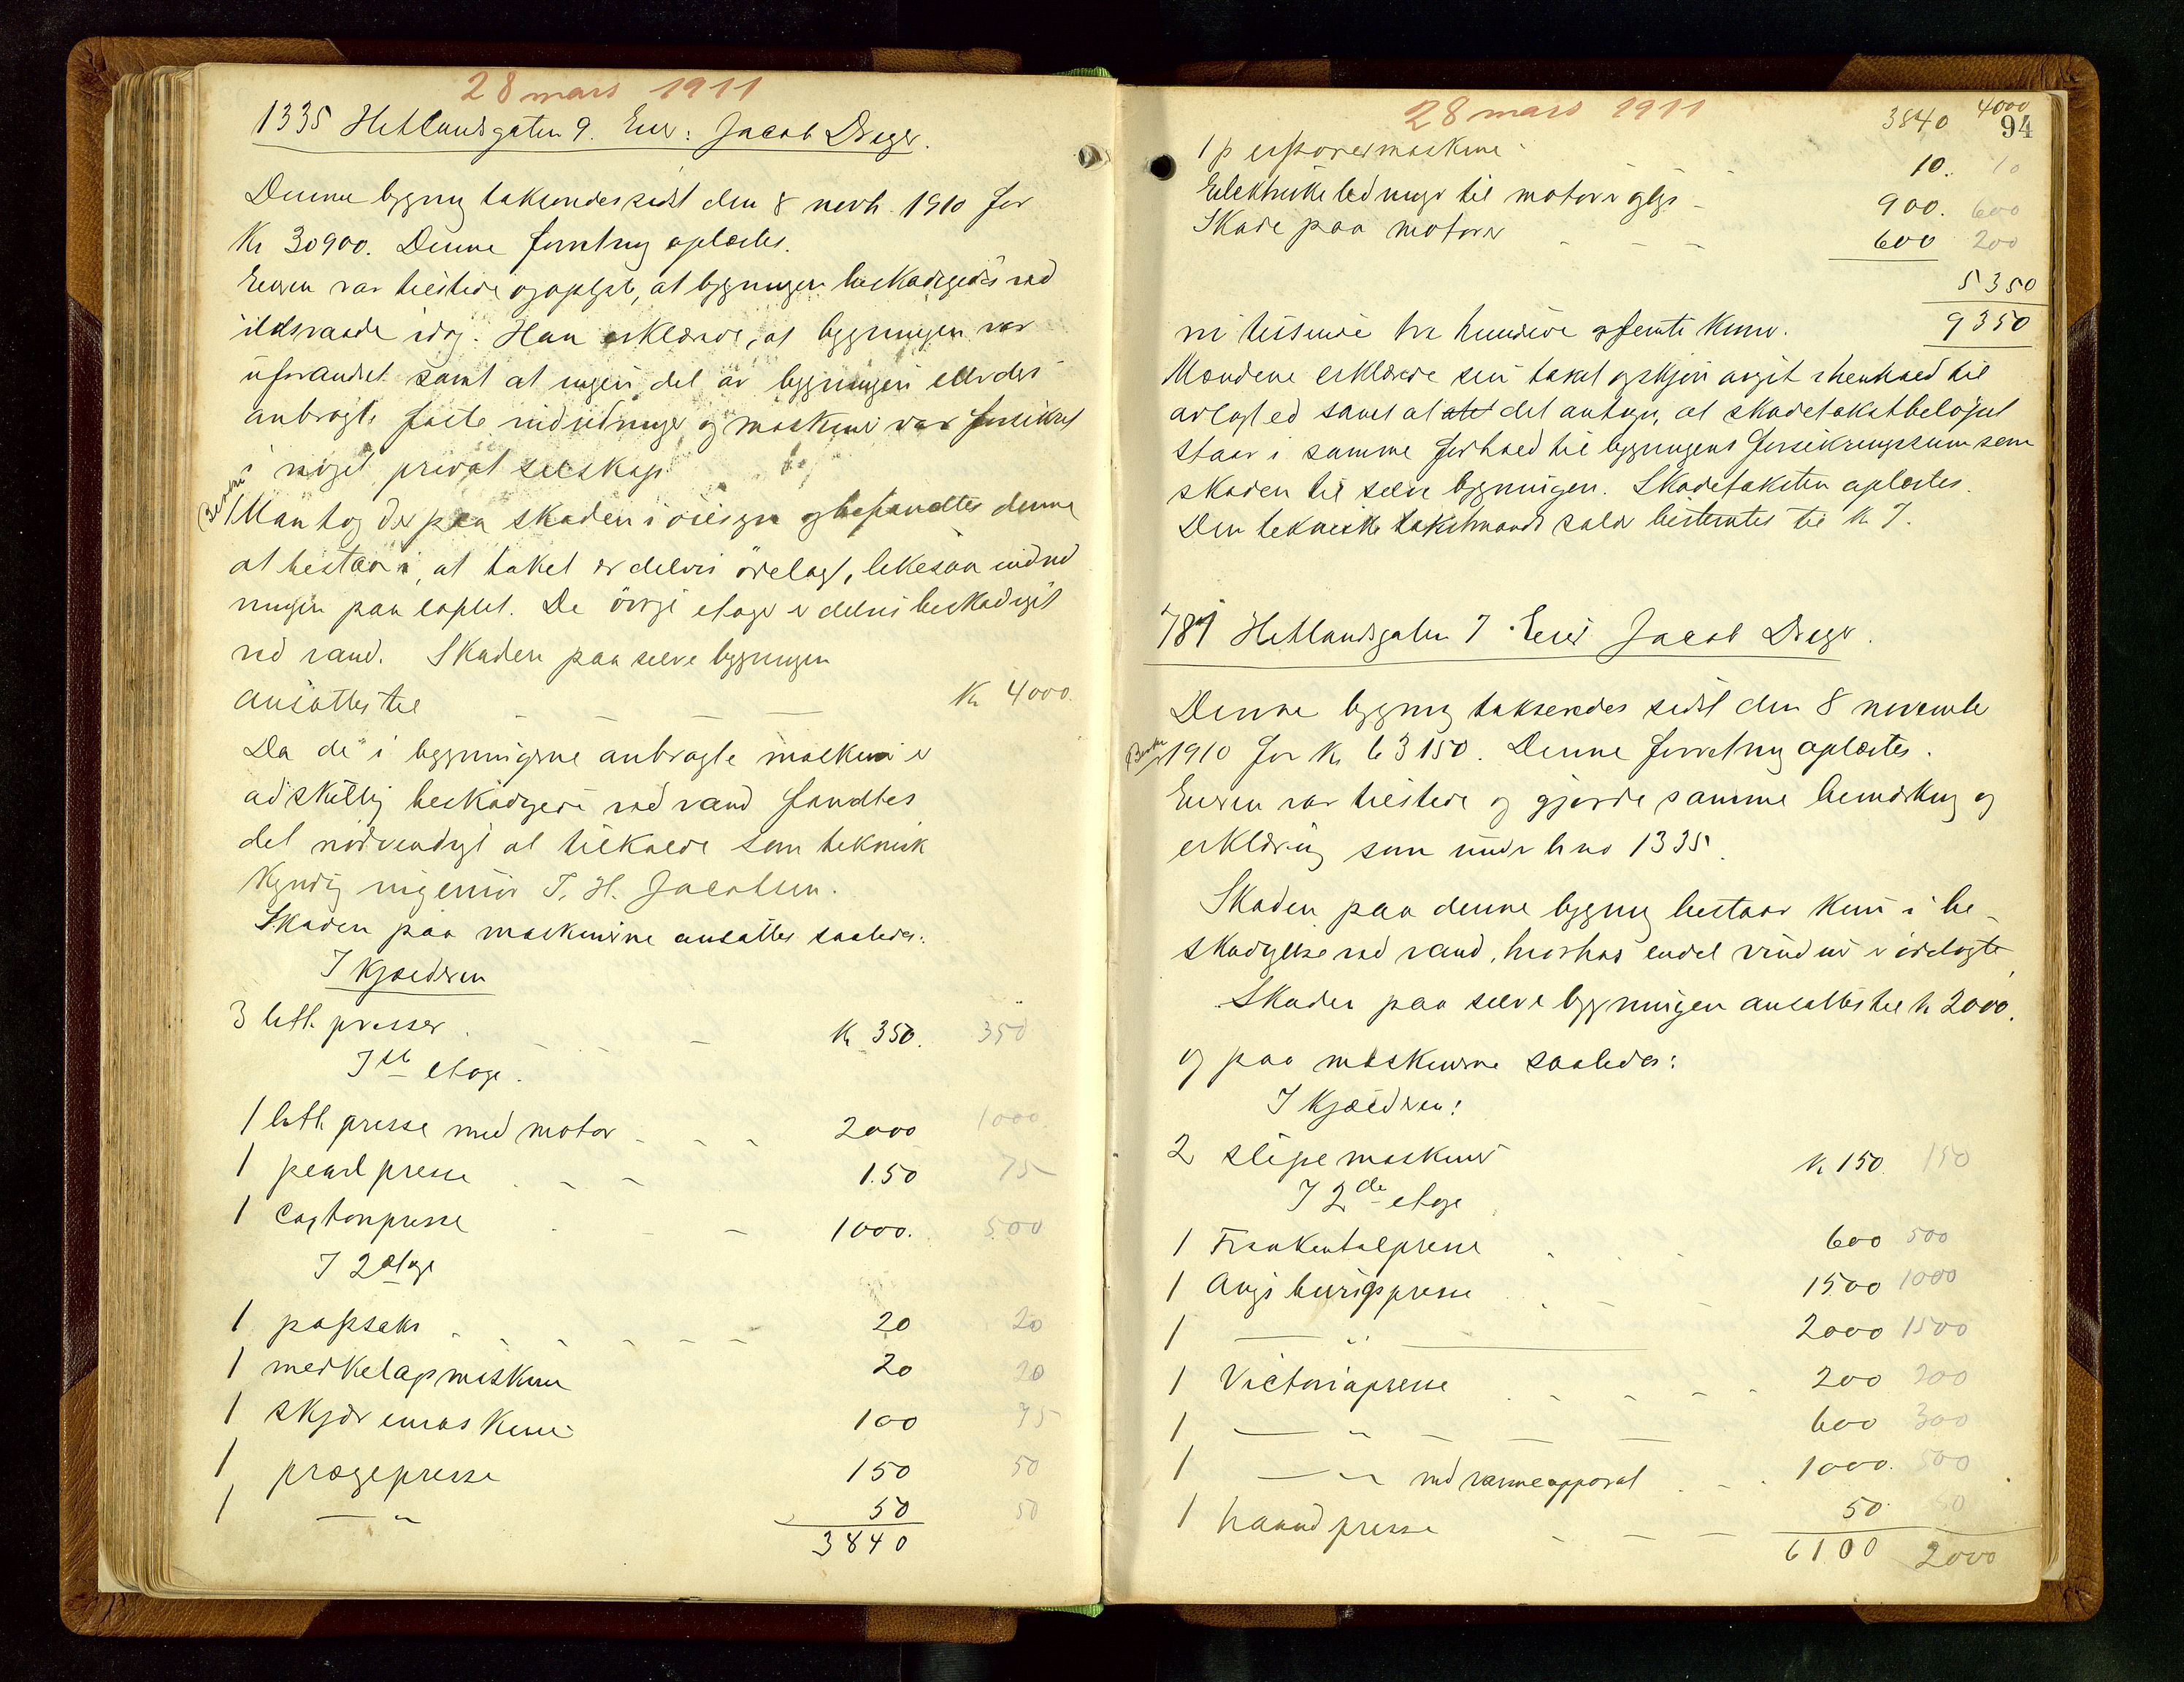 28 mars 1911
1335 Hetlandsgaten 9. Eier: Jacob Dreyer.
Denne bygning taksertes sidst den 8 novb. 1910 for
Kr 30900. Denne forretning oplæstes.
Eieren var tilstede og oplyste, at bygningen beskadigedes ved
ildsvaade idag. Han erklærede, at bygningen var
uforandret samt at ingen del av bygningen eller des
anbragte faste indretninger og maskiner var forsikret
i noget privat selskap.
Man tog der paa skaden i öiesyn og befandtes denne
at bestaa i, at taket er delvis ödelagt, likesaa indred
ningen paa loftet. De övrige etager er delvis beskadiget
ved vand. Skaden paa selve bygningen
ansattes til - - - - Kr 4000.
Da de i bygningerne anbragte maskiner er
adskillig beskadigede ved vand fandtes
det nödvendigt at tilkalde som teknisk
kyndig ingeniör T. H. Jacobsen.
Skaden paa maskinerne ansattes saaledes:
I kjælderen
3 lith. presser. - - - Kr 350. 350
I 1ste etage.
1 lith. presse med motor - - - 2000 1000
1 pearl presse - - - 150 75
1 Cartonpresse - - - 1000. 500
I 2 etage
1 papsaks - - - - - - 20 20
1 merkelapmaskine 20 20
1 skjæremaskine 100 75
1 prægepresse 150 50
1 — " — 50 50
3840
28 mars 1911
3840 4000
94
1 perforermaskine 10. 10
Elektriske ledninger til motor og lys - 900. 600
Skade paa motorer - - - 600 200
5350
ni tusinde tre hundrede og femti kroner. 9350
Mændene erklærede sin takst og skjön avgit i henhold til
avlagt ed samt at det antages, at skadetakstbelöpet
staar i samme forhold til bygningens forsikringssum som
skaden til selve bygningen. Skadetaksten oplæstes.
Den tekniske takstmands salær bestemtes til kr 7.
781 Hetlandsgaten 7 Eier Jacob Dreyer.
Denne bygning taksertes sidst den 8 november
1910 for kr 63150. Denne forretning oplæstes.
Eieren var tilstede og gjorde samme bemerkning og
erklæring som under br no 1335.
Skaden paa denne bygning bestaar kun i be-
skadigelse ved vand, hvorhos endel vinduer er ödelagte
Skaden paa selve bygningen ansattes til kr 2000.
og paa maskinerne saaledes:
I kjælderen:
2 slipemaskiner kr 150. 150
I 2de etage
1 Frankentalpresse - - - 600 500
1 Augsburigspresse - - - 1500 1000
1 — " — 2000 1500
1 Victoriapresse - - - - - 200 200
1 — " — — — 600 300
1 — " — med varmeapparat - - 1000. 500
1 haandpresse - - - 50 50
6100 2000